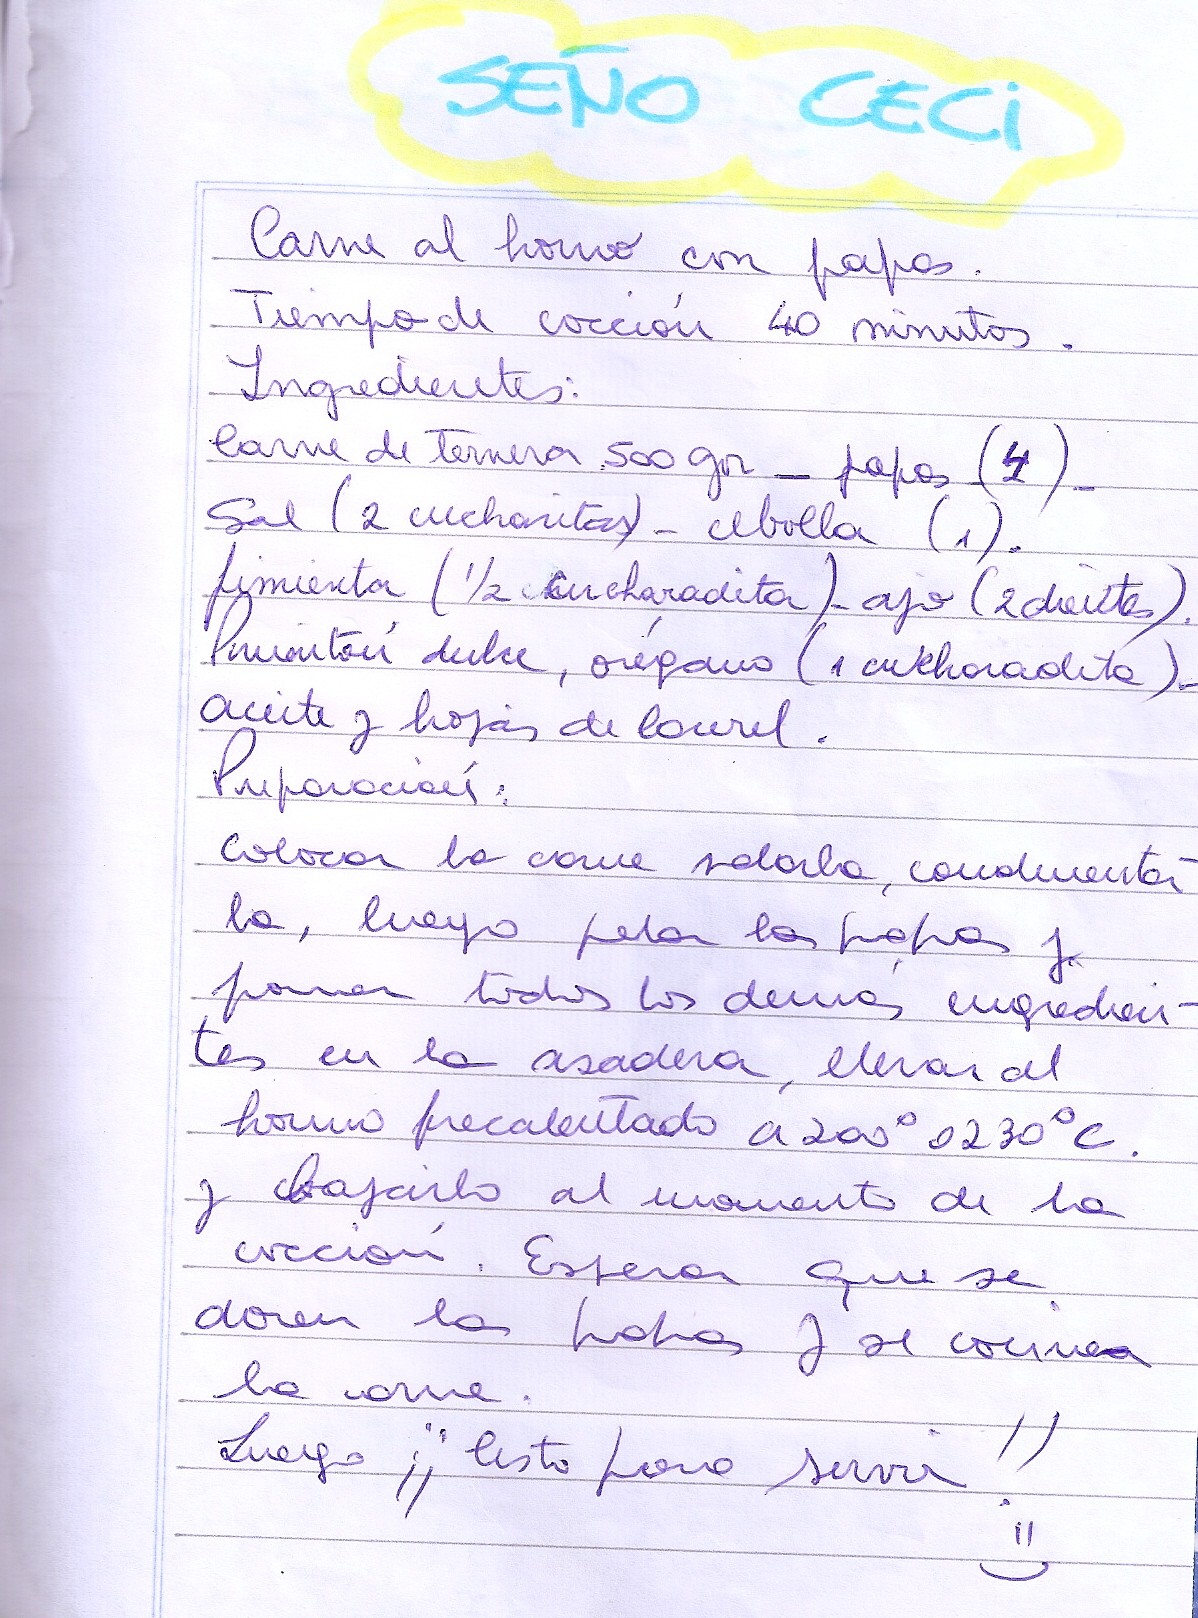 SEÑO CECI
Carne al horno con papas.
Tiempo de cocción 40 minutos.
Ingredientes:
Carne de ternera 500 gr - papas (4) -
Sal (2 cucharitas) - cebolla (1).
pimienta (1/2 cucharadita) - ajo (2 dientes).
Pimentón dulce, orégano (1 cucharadita) -
aceite y hojas de laurel.
Preparación:
Colocar la carne salarla, condimentar-
la, luego pelar las papas y
poner todos los demás ingredien-
tes en la asadera, llevar al
horno precalentado a 200° o 230°C.
y bajarlo al momento de la
cocción. Esperar que se
doren las papas y se cocinea
la carne.
Luego ¡¡ listo para servir!!